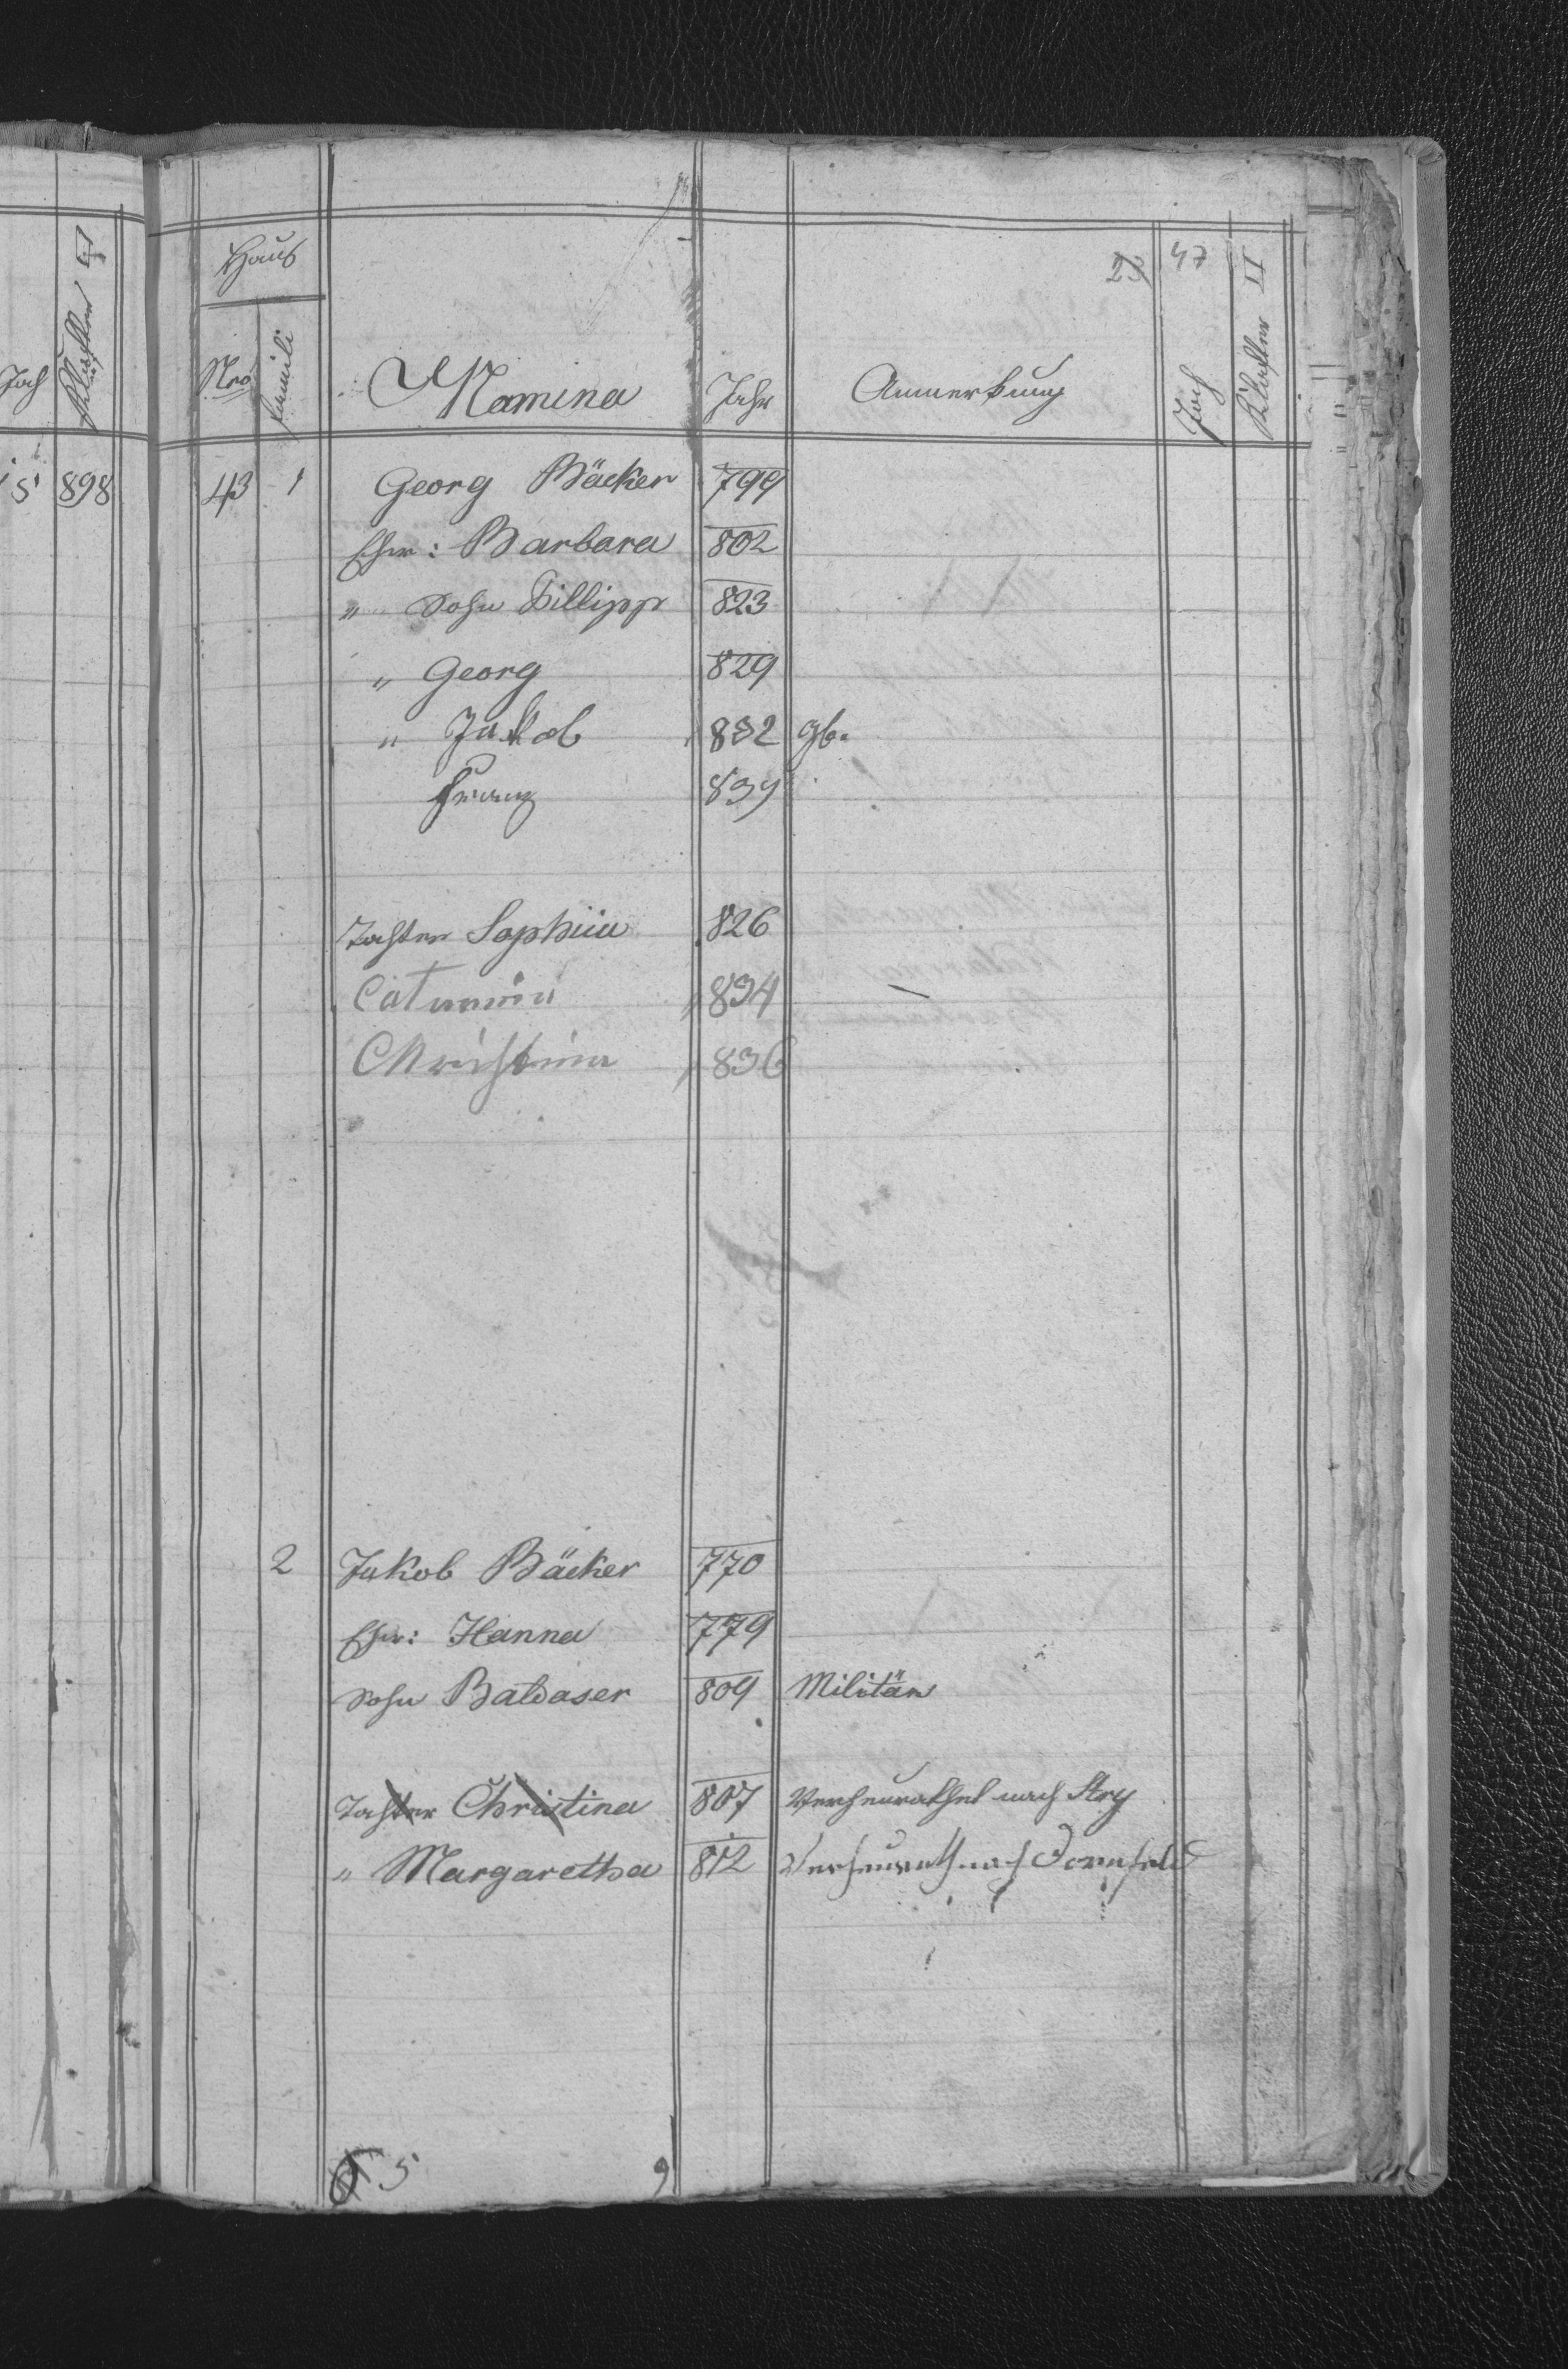 Joch Klafter
5 898
23 47
Haus
Nro Famili Namina Jahr Anmerkung Joch Klafter II
43 1 Georg Bäcker 799
Ehw: Barbara 802
" Sohn Fillipp 823
" Georg 829
" Jakob 832 gb.
Franz 839
Tochter Sophia 826
Catarina 834
Christina 836
2 Jakob Bäcker 770
Ehw: Hanna 779
Sohn Baldaser 809 Militär
Tochter Christina 807 Verheurathet nach Stry
" Margaretha 812 Verheurath nach Dornfeld
5 9